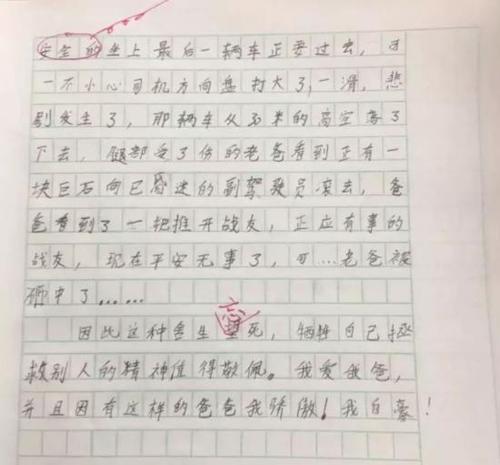 安全的坐上最后一辆车正要过去，可
一不小心司机方向盘打大了，一滑，悲
剧发生了，那辆车从30米的高空落了
下去，腿部受了伤的老爸看到正有一
块巨石向已昏迷的副驾驶员滚去，爸
爸看到了一把推开战友，正应有事的
战友，现在平安无事了，可…老爸被
砸中了……
因此这种舍生忘死，牺牲自己拯
救别人的精神值得敬佩。我爱我爸，
并且因有这样的爸爸我骄傲！我自豪！